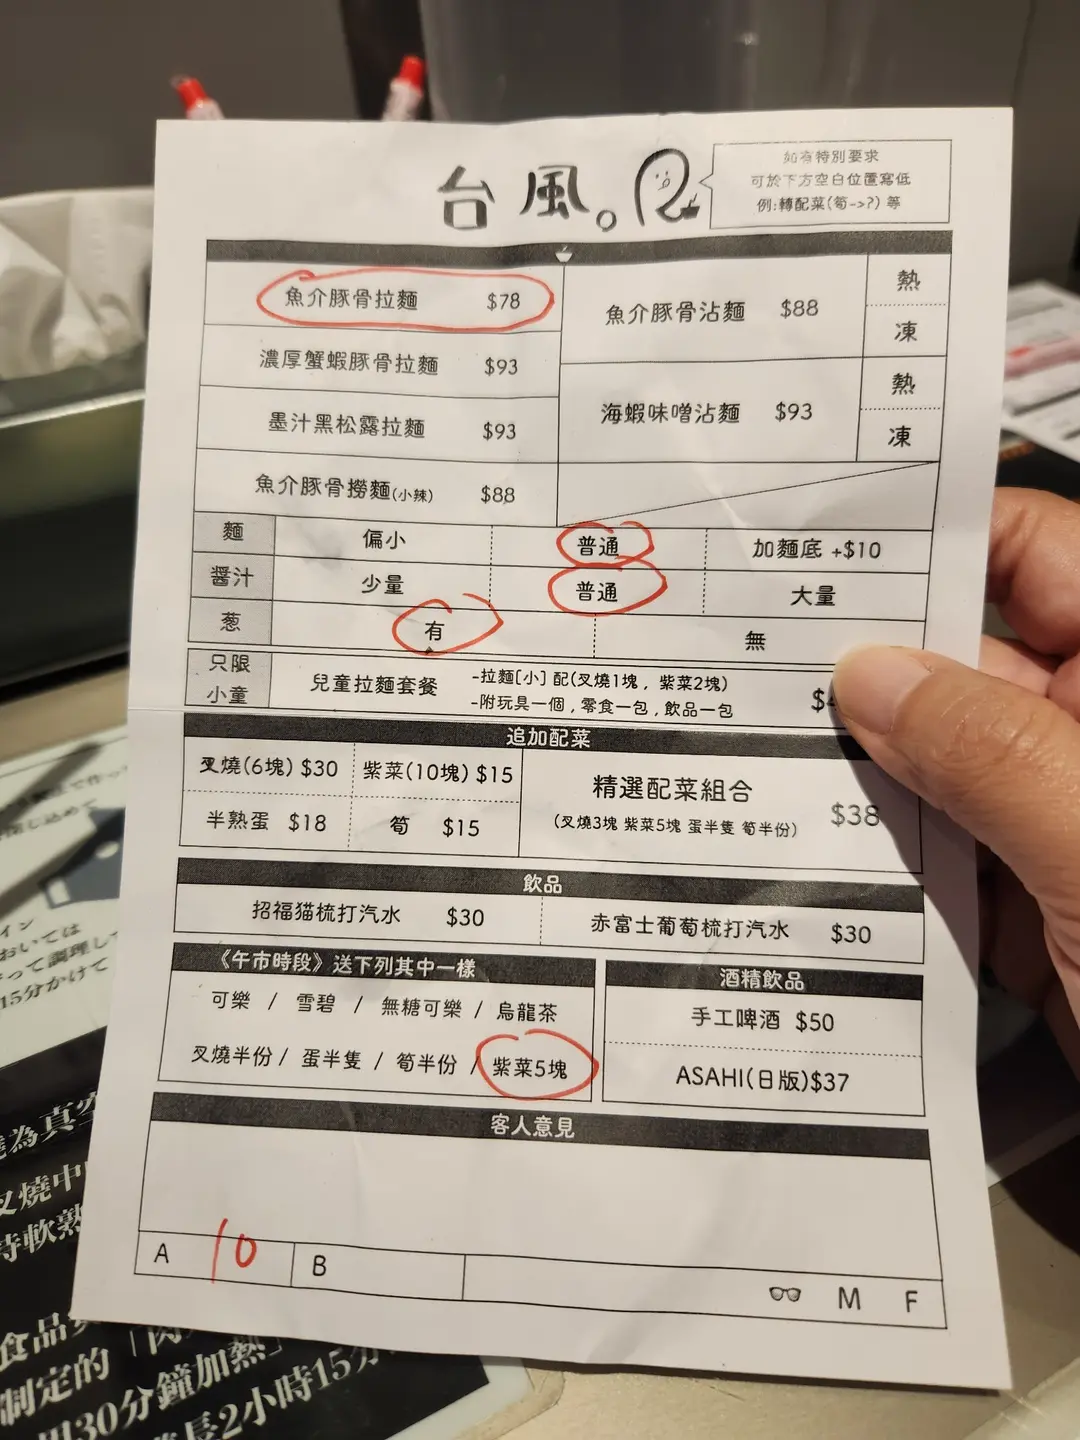 台風。
如有特別要求
可於下方空白位置寫低
例:轉配菜(筍->?) 等
魚介豚骨拉麵 $78
濃厚蟹蝦豚骨拉麵 $93
墨汁黑松露拉麵 $93
魚介豚骨撈麵(小辣) $88
魚介豚骨沾麵 $88 熱 凍
海蝦味噌沾麵 $93 熱 凍
麵 偏小 普通 加麵底 +$10
醬汁 少量 普通 大量
葱 有 無
只限小童 兒童拉麵套餐
-拉麵[小] 配(叉燒1塊, 紫菜2塊)
-附玩具一個, 零食一包, 飲品一包
追加配菜
叉燒(6塊) $30 紫菜(10塊) $15
半熟蛋 $18 筍 $15
精選配菜組合 $38
(叉燒3塊 紫菜5塊 蛋半隻 筍半份)
飲品
招福猫梳打汽水 $30 赤富士葡萄梳打汽水 $30
《午市時段》送下列其中一樣
可樂 / 雪碧 / 無糖可樂 / 烏龍茶
叉燒半份 / 蛋半隻 / 筍半份 / 紫菜5塊
酒精飲品
手工啤酒 $50
ASAHI(日版)$37
客人意見
A 10 B M F
イン
おいては
って調理し
15分かけて
為真空
叉燒中
時軟熟
食品
制定的「肉
用30分鐘加熱」
長2小時15分